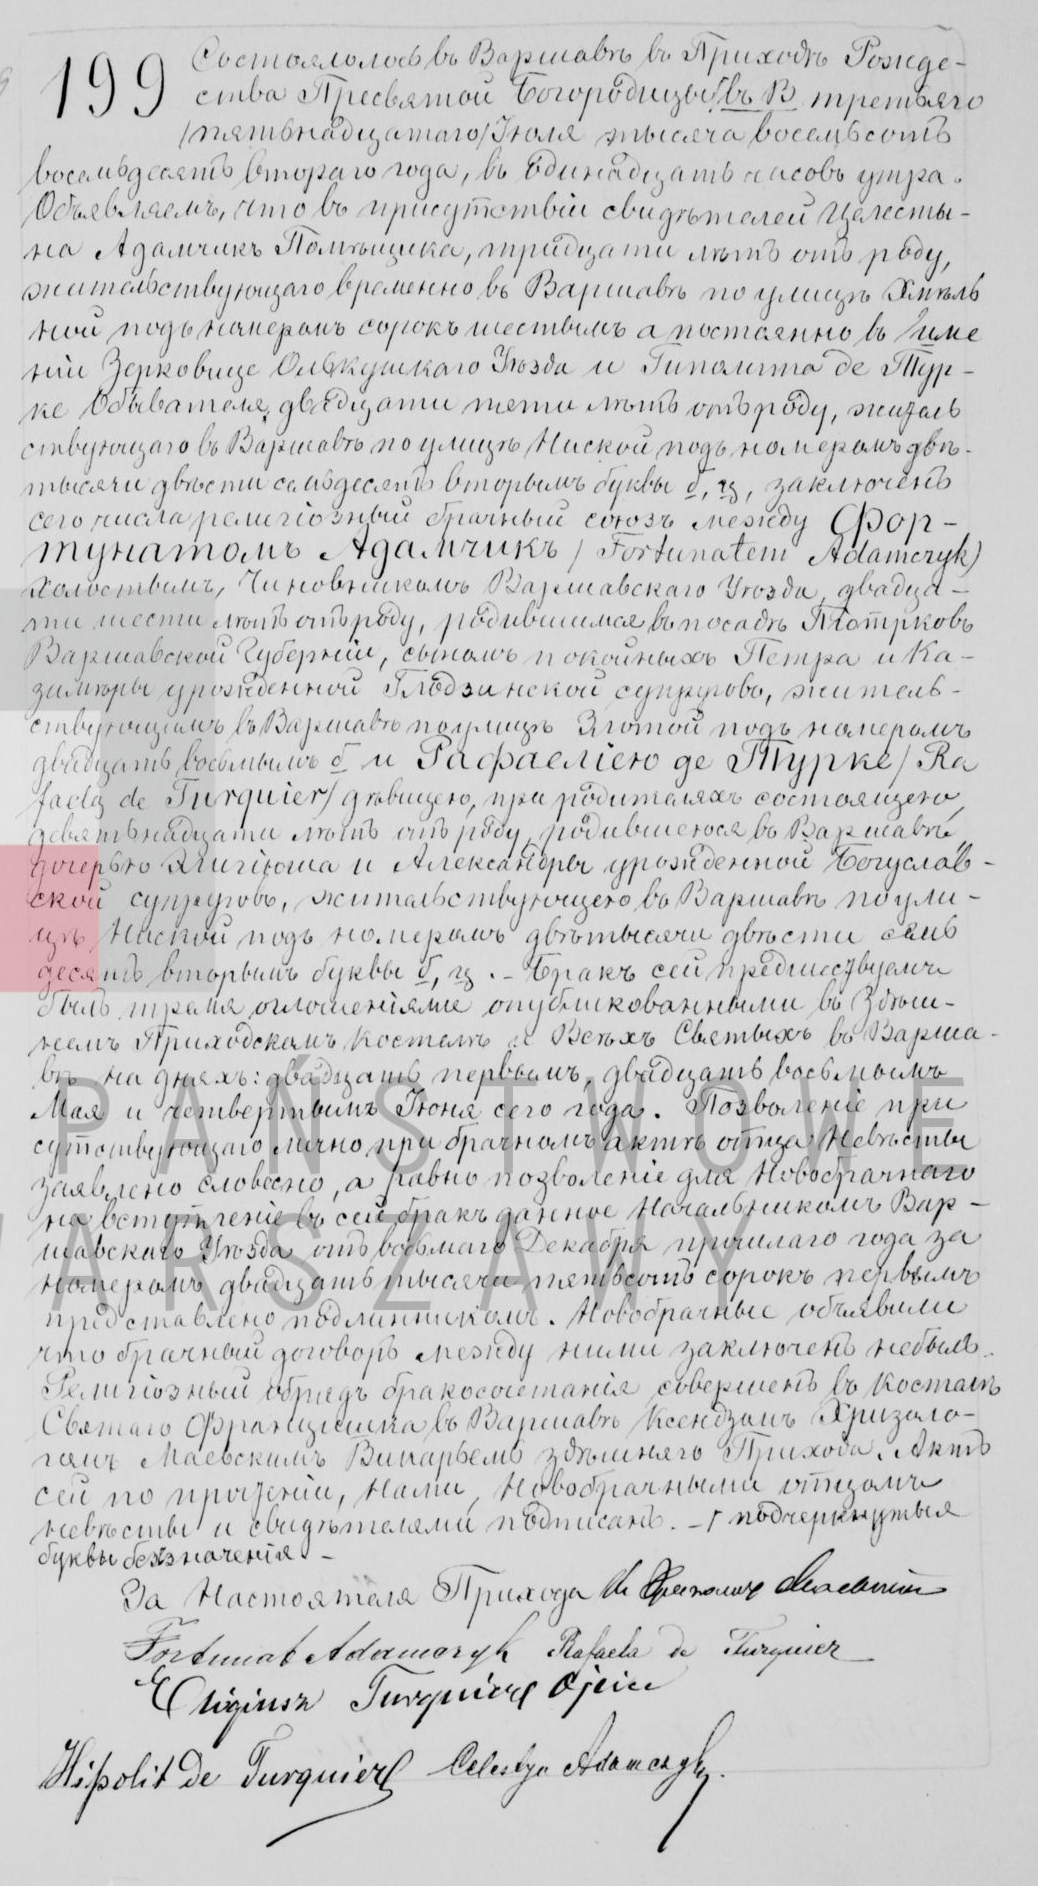 199 Состоялолось въ Варшавѣ въ Приходѣ Рожде-
ства Пресвятой Богородицы въ В третьяго
/пятьнадцатаго/ Іюля тысяча восемьсотъ
восемьдесятъ втораго года, въ Одинадцать часовъ утра.
Объявляемъ, что въ присутствіи свидѣтелей Целесты-
на Адамчикъ Помѣщика, тридцати лѣтъ отъ роду,
жительствующаго временно въ Варшавѣ по улицѣ Хмѣль
ной подъ номеромъ сорокъ шестымъ а постоянно въ Име
ніи Зерковице Олькушкаго Уѣзда и Гиполита де Тур-
ке Обывателя, двадцати пяти лѣтъ отъ роду, житель
ствующаго въ Варшавѣ по улицѣ Ниской подъ номеромъ двѣ-
тысячи двѣсти семьдесятъ вторымъ буквы б, ц, заключенъ
сего числа религіозный брачный союзъ между Фор-
тунатомъ Адамчикъ / Fortunatem Adamczyk)
Холостымъ, Чиновникомъ Варшавскаго Уѣзда, двадца-
ти шести лѣтъ отъ роду, родившимся въ посадѣ Піотрковъ
Варшавской Губерніи, сыномъ покойныхъ Петра и Ка-
зимѣры урожденной Глодзинской супруговъ, житель-
ствующимъ въ Варшавѣ по улицѣ Злотой подъ номеромъ
двадцать восьмымъ б и Рафаеліею де Турке / Ra
faelą de Turquier/ дѣвицею, при родителяхъ состоящею,
девятьнадцати лѣтъ отъ роду, родившеюся въ Варшавѣ,
дочерью Элигіюша и Александры урожденной Богуслав-
ской супруговъ, жительствующею въ Варшавѣ по ули-
цѣ Ниской подъ номеромъ двѣтысячи двѣсти семь
десятъ вторымъ буквы б, ц. - Бракъ сей предшествуемъ
былъ тремя оглошеніями опубликованными въ Здѣш-
немъ Приходскомъ Костелѣ и Всѣхъ Святыхъ въ Варша-
вѣ на дняхъ: двадцать первымъ, двадцать восьмымъ
Мая и четвертымъ Іюня сего года. Позволеніе при
сутствующаго лично при брачномъ актѣ отца Невѣсты
заявлено словесно, а равно позволеніе для Новобрачнаго
на вступленіе въ сей бракъ данное Начальникомъ Вар-
шавскаго Уѣзда отъ восьмаго Декабря прошлаго года за
номеромъ двадцать тысячи пятьсотъ сорокъ первымъ
представлено подлинникомъ. Новобрачные объявили
что брачный договоръ между ними заключенъ небылъ.
Религіозный обрядъ бракосочетанія совершенъ въ Костелѣ
Святаго Францишка въ Варшавѣ Ксендзомъ Хризоло-
гомъ Маевскимъ Викаріемъ здѣшняго Прихода. Актъ
сей по прочтеніи, Нами, Новобрачными отцомъ
невѣсты и свидѣтелями подписанъ. - / подчеркнутыя
буквы безъ значенія -
За Настоятеля Прихода
Fortunat Adamczyk Rafaela de Turquier
Eligiusz Turquier Ojciec
Hipolit de Turquier Celestyn Adamczyk.
PAŃSTWOWE
WARSZAWY